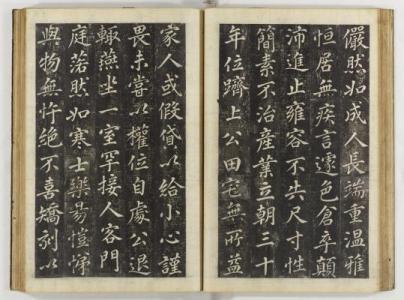 儼然如成人長端重溫雅
恒居無疾言遽色倉卒顛
沛進止雍容不失尺寸性
簡素不治産業立朝三十
年位躋上公田宅無所益
家人或假貸以給小心謹
畏未嘗以權位自處公退
輒燕坐一室罕接人客門
庭落然如寒士樂易愷悌
與物無忤絶不喜矯刻以